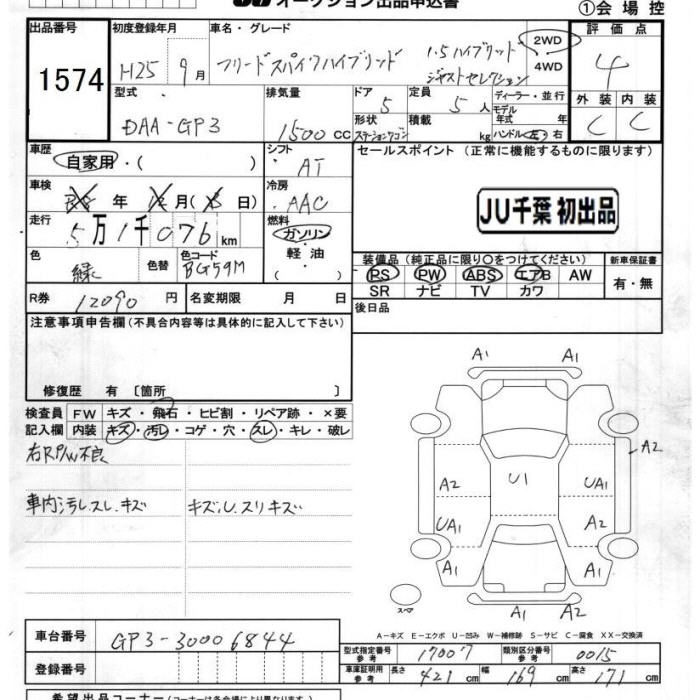 オークション出品申込書
①会場控
出品番号 1574
初度登録年月 H25 9月
車名・グレード フリードスパイクハイブリッド 1.5ハイブリッド ジャストセレクション
2WD
4WD
評価点 4
型式 DAA-GP3
排気量 1500cc
ドア 5
定員 5人
形状 ステーションワゴン
積載 kg
ディーラー・並行
モデル年式 年
ハンドル 左・右
外装 C
内装 C
車歴 自家用・( )
シフト AT
セールスポイント (正常に機能するものに限ります)
車検 年 月( 日)
冷房 AAC
JU千葉 初出品
走行 5万1千076km
燃料 ガソリン・軽油・( )
色 緑
色替
色コード BG59M
装備品(純正品に限り〇をつけてください)
新車保証書
PS PW ABS エアB AW
SR ナビ TV カワ
有・無
R券 12090円
名変期限 月 日
後日品
注意事項申告欄(不具合内容等は具体的に記入して下さい)
修復歴 有〔箇所 〕
検査員 FW キズ・飛石・ヒビ割・リペア跡・×要
記入欄 内装 キズ・汚レ・コゲ・穴・スレ・キレ・破レ
右RP/W不良
車内汚レ.スレ.キズ
キズ.U.スリキズ
A1 A1
A2
A2 U1 UA1
UA1 A2
A1 A1
A1 A2
スペア
A－キズ E－エクボ U－凹み W－補修跡 S－サビ C－腐食 XX－交換済
車台番号 GP3-30006844
型式指定番号 参考 17007
類別区分番号 参考 0015
登録番号
車庫証明用 参考 長さ 421cm 幅 169cm 高さ 171cm
希望出品コーナー(コーナーは各会場により異なります。)